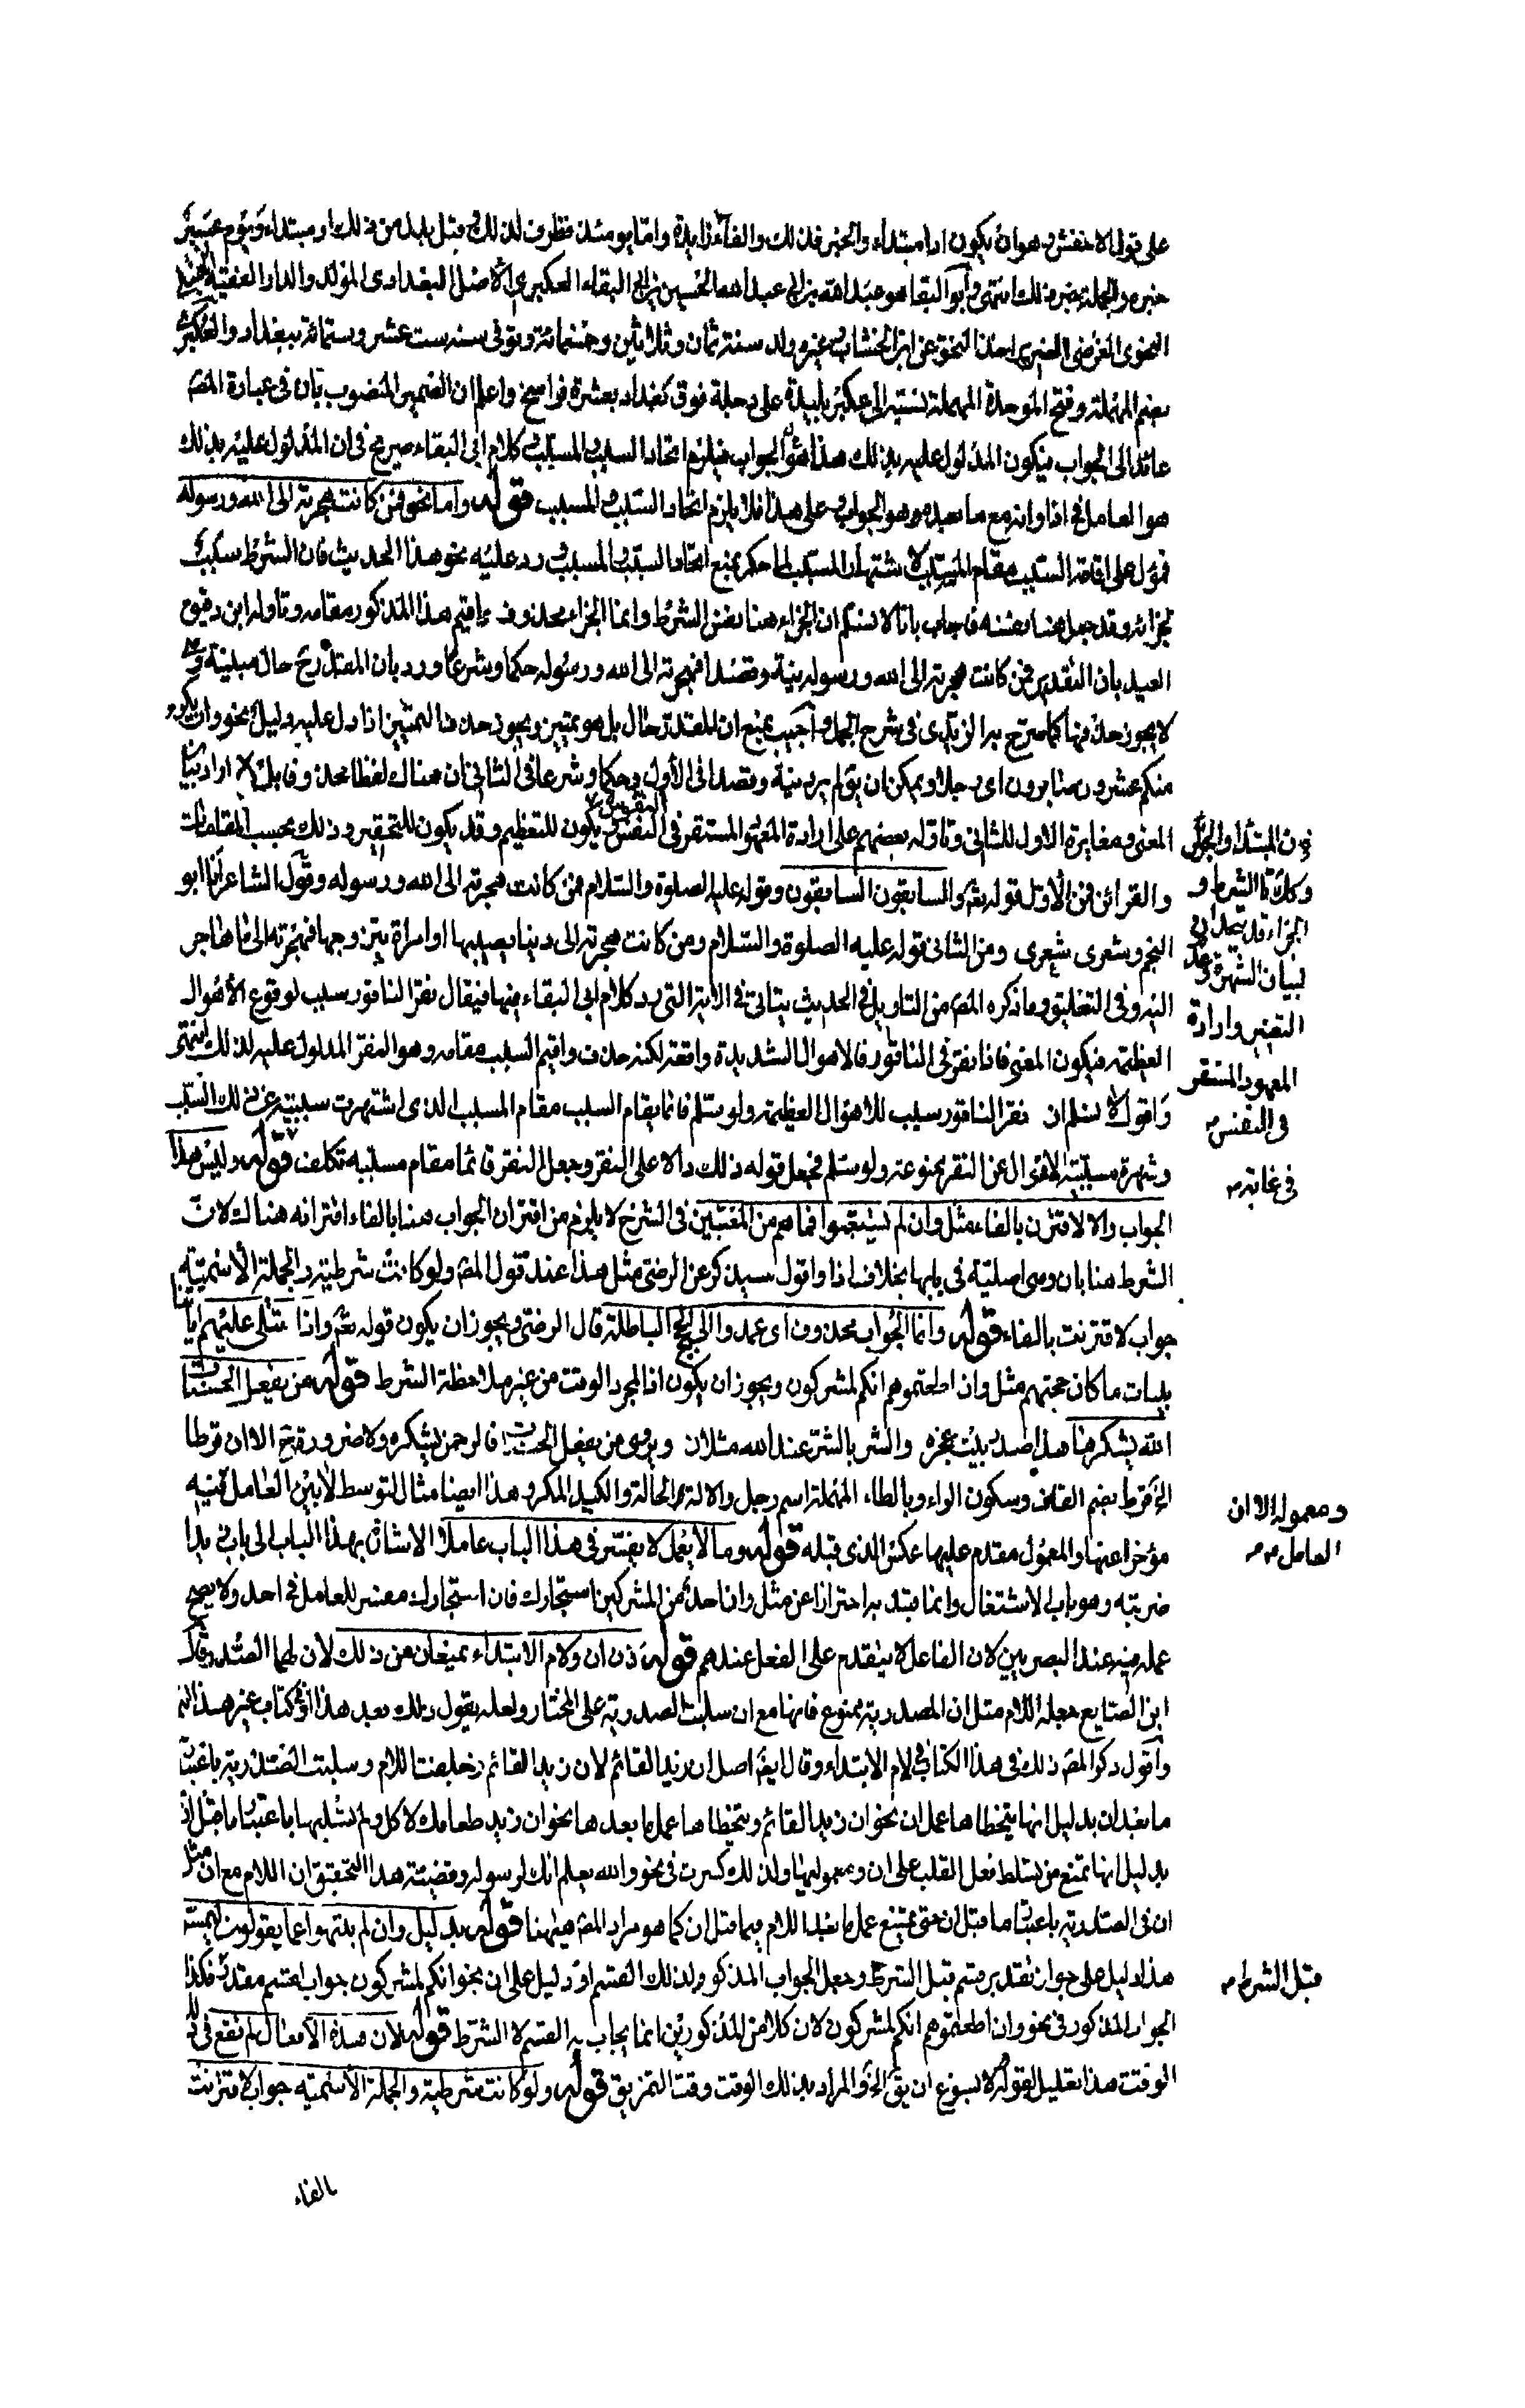 على قول الاخفش وهو ان يكون اذا مبتداء والخبر فذلك والفاء زايدة واما يومئذ فظرف لذلك قيل بدل من ذلك او مبتداء ويوم عسير
خبره والجملة خبر ذلك انتهى وابو البقا هو عبد الله بن ابى عبد الله الحسين بن ابى البقاء العكبرى الاصل البغدادى المولد والدار الفقيه الحنبلى
النحوى الفرضى الضرير اخذ النحو عن ابن الخشاب وغيره ولد سنة ثمان وثلاثين وخمسمائة وتوفى سنة ست عشر وستمائة ببغداد والعكبرى
بضم المهملة وفتح الموحدة المهملة نسبته الى عكبر بليدة على دجلة فوق بغداد بعشرة فراسخ واعلم ان الضمير المنصوب بان فى عبارة المص
عائد الى الجواب فيكون المدلول عليه بذلك هذا هو الجواب فيلزم اتحاد السبب والمسبب وكلام ابى البقاء صريح فى ان المدلول عليه بذلك
هو العامل فى اذا وانه مع ما بعده هو الجواب وعلى هذا فلا يلزم اتحاد السبب والمسبب قوله واما نحو فمن كانت هجرته الى الله ورسوله
فمؤل على اقامة السبب مقام المسبب لاشتهار المسبب لما حكم بمنع اتحاد السبب والمسبب ورد عليه نحو هذا الحديث فان الشرط سبب
لجزائه وقد جعل هنا بعينه فاجاب بانا لا نسلم ان الجزاء هنا نفس الشرط وانما الجزاء محذوف واقيم هذا المذكور مقامه وتاوله ابن دقيق
العيد بان التقدير فمن كانت هجرته الى الله ورسوله بنية وقصدا فهجرته الى الله ورسوله حكما وشرعا ورد بان المقدر ح حال مبينة و
لا يجوز حذفها كما صرح به الزبيدى فى شرح الجمل واجيب بمنع ان المقدر حال بل هو تمييز ويجوز حذف التمييز اذا دل عليه دليل نحو وان يكن
منكم عشرون صابرون اى رجلا ويمكن ان يق لم يرد بنية وقصدا فى الاول وحكما وشرعا فى الثانى ان هناك لفظا محذوفا بل اراد بيان
المعنى ومغايرة الاول للثانى وتاوله بعضهم على ارادة المعهود المستقر فى النفس يكون للتعظيم وقد يكون للتحقير وذلك بحسب المقامات
والقرائن فمن الاول قوله تعه والسابقون السابقون وقوله عليه الصلوة والسلام فمن كانت هجرته الى الله ورسوله وقول الشاعر انا ابو
النجم وشعرى شعرى ومن الثانى قوله عليه الصلوة والسلام ومن كانت هجرته الى دنيا يصيبها او امراة يتزوجها فهجرته الى ما هاجر
اليه وفى التعليق وما ذكره المص من التاويل فى الحديث يتاتى فى الاية التى رد كلام ابى البقاء فيها فيقال نقر الناقور سبب لوقوع الأهوال
العظيمة فيكون المعنى فاذا نقر فى الناقور فالاهوال الشديدة واقعة لكنه حذف واقيم السبب مقامه وهو النقر المدلول عليه بذلك انتهى
واقول لا نسلم ان نقر الناقور سبب للاهوال العظيمة ولو سلم فانما يقام السبب مقام المسبب الذى اشتهرت سببيته عن ذلك السبب
وشهرة مسببية الاهوال عن النقر ممنوعة ولو سلم فجعل قوله ذلك دالا على النقر وجعل النقر قائما مقام مسببه تكلف قوله وليس هذا
الجواب والا لاقترن بالفاء مثل وان لم يستعتبوا فما هم من المعتبين فى الشرح لا يلزم من اقتران الجواب هنا بالفاء اقترانه هناك لان
الشرط هنا بان وهى اصلية فى بابها بخلاف اذا واقول سيذكر عن الرضى مثل هذا عند قول المص ولو كانت شرطية والجملة الاسمية
جواب لاقترنت بالفاء قوله وانما الجواب محذوف اى عمدوا الى الحجج الباطلة قال الرضى ويجوز ان يكون قوله تعه واذا تتلى عليهم اياتنا
بينات ما كان حجتهم مثل وان اطعتموهم انكم لمشركون ويجوز ان يكون اذا لمجرد الوقت من غير ملاحظة الشرط قوله من يفعل الحسنات
الله يشكرها هذا صدر بيت عجزه والشر بالشر عند الله مثلان ويروى من يفعل الخير فالرحمن يشكره ولا ضرورة ح الا ان قرطا
الخ قرط بضم القاف وسكون الراء وبالطاء المهملة اسم رجل والالة الحالة والكيد المكر وهذا ايضا مثال لتوسط لا بين العامل فيه
مؤخرا عنها والمعمول مقدم عليها عكس الذى قبله قوله وما لا يعمل لا يفسر فى هذا الباب عاملا الاشارة بهذا الباب الى باب زيدا
ضربته وهو باب الاشتغال وانما قيد به احترازا عن مثل وان احد من المشركين استجارك فان استجارك مفسر للعامل فى احد ولا يصح
عمله فيه عند البصريين لان الفاعل لا يتقدم على الفعل عندهم قوله ان ولام الابتداء يمنعان من ذلك لان لهما الصدر وقال
ابن الصايغ جعله اللام مثل ان الصدرية ممنوع فانها مع ان سلبت الصدرية على المختار ولعله يقول ذلك بعد هذا او فى كتاب غير هذا انتهى
واقول ذكر المص ذلك فى هذا الكتاب فى لام الابتداء وقال يعنى اصل ان زيدا لقائم لان زيدا قائم زحلفت اللام وسلبت الصدرية باعتبار
ما بعد ان بدليل انها يتخطاها عمل ان نحو ان زيدا لقائم ويتخطاها عمل ما بعدها نحو ان زيدا طعامك لاكل ولم تسلبها باعتبار ما قبل ان
بدليل انها تمنع من تسلط فعل القلب على ان ومعموليها ولذلك كسرت فى نحو والله يعلم انك لرسوله وقضية هذا التحقيق ان اللام مع ان مثل
ان فى الصدرية باعتبار ما قبل ان حتى يمتنع عمل ما بعد اللام فيما قبل ان كما هو مراد المص هيهنا قوله بدليل وان لم ينتهوا عما يقولون ليمسن
هذا دليل على جواز تقدير قسم قبل الشرط وجعل الجواب المذكور لذلك القسم او دليل على ان نحو انكم لمشركون جواب لقسم مقدر فكذا
الجواب المذكور فى نحو وان اطعتموهم انكم لمشركون لان كلا من المذكورين انما يجاب به القسم لا الشرط قوله لان هذه الافعال لم تقع فى ذلك
الوقت هذا تعليل لقوله لا يسوغ ان يق الخ والمراد بذلك الوقت وقت التمزيق قوله ولو كانت شرطية والجملة الاسمية جواب لاقترنت
بالفاء
المبتداء والخبر
وكذا الشرط و
الجزاء قد يتحدان
لبيان الشهرة و
التغيير وارادة
المعهود المستقر
فى النفس
فى غاية
ومعموله الا ان
العامل
قبل الشرط